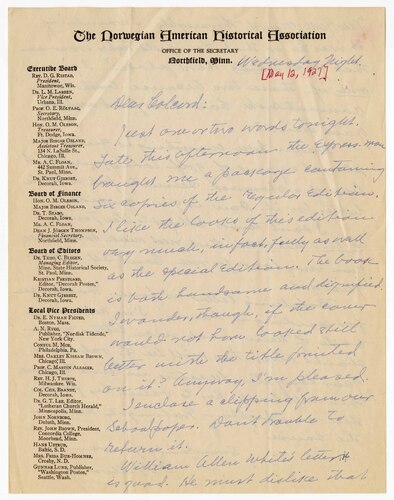 The Norwegian American Historical Association
OFFICE OF THE SECRETARY
Northfield, Minn.
Wednesday Night.
[May 12, 1927]
Executive Board
REV. D. G. RISTAD,
President,
Manitowoc, Wis.
DR. L. M. LARSEN,
Vice President,
Urbana, Ill.
PROF. O. E. RÖLVAAG,
Secretary,
Northfield, Minn.
HON. O. M. OLESON,
Treasurer,
Ft. Dodge, Iowa.
MAJOR BIRGER OSLAND,
Assistant Treasurer,
134 N. LaSalle St.,
Chicago, Ill.
MR. A. C. FLOAN,
442 Summit Ave.,
St. Paul, Minn.
DR. KNUT GJERSET,
Decorah, Iowa.
Board of Finance
HON. O. M. OLESON,
MAJOR BIRGER OSLAND,
DR. T. STABO,
Decorah, Iowa.
MR. A. C. FLOAN,
DEAN J. JÖRGEN THOMPSON,
Financial Secretary,
Northfield, Minn.
Board of Editors
DR. THEO. C. BLEGEN,
Managing Editor,
Minn. State Historical Society,
St. Paul, Minn.
KRISTIAN PRESTGARD,
Editor, "Decorah Posten,"
Decorah, Iowa.
DR. KNUT GJERSET,
Decorah, Iowa.
Local Vice Presidents
A. N. RYGG,
Publisher, "Nordisk Tidende,"
New York City.
Philadelphia, Pa.
Chicago, Ill.
Chicago, Ill.
REV. H. J. THORPE,
Milwaukee, Wis.
Decorah, Ia.
DR. G. T. LEE, Editor,
"Lutheran Church Herald,"
Minneapolis, Minn.
JOHN NORNBORG,
Duluth, Minn.
REV. JOHN BROWN, President,
Concordia College,
Moorhead, Minn.
HANS USTRUD,
Baltic, S. D.
Crosby, N. D.
GUNNAR LUND, Publisher,
"Washington Posten,"
Seattle, Wash.
Dear Colcord:
Just one or two words tonight.
Late this afternoon the express-man
brought me a package containing
six copies of the Regular Edition.
I like the looks of this edition
very much, in fact, fully as well
as the special Edition. The book
is both handsome and dignified.
I wonder, though, if the cover
would not have looked still
better with the title printed
on it? Anyway, I'm pleased.
I enclose a clipping from our
School paper. Don't trouble to
return it.
William Allen White's letter
is good. He must dislike that